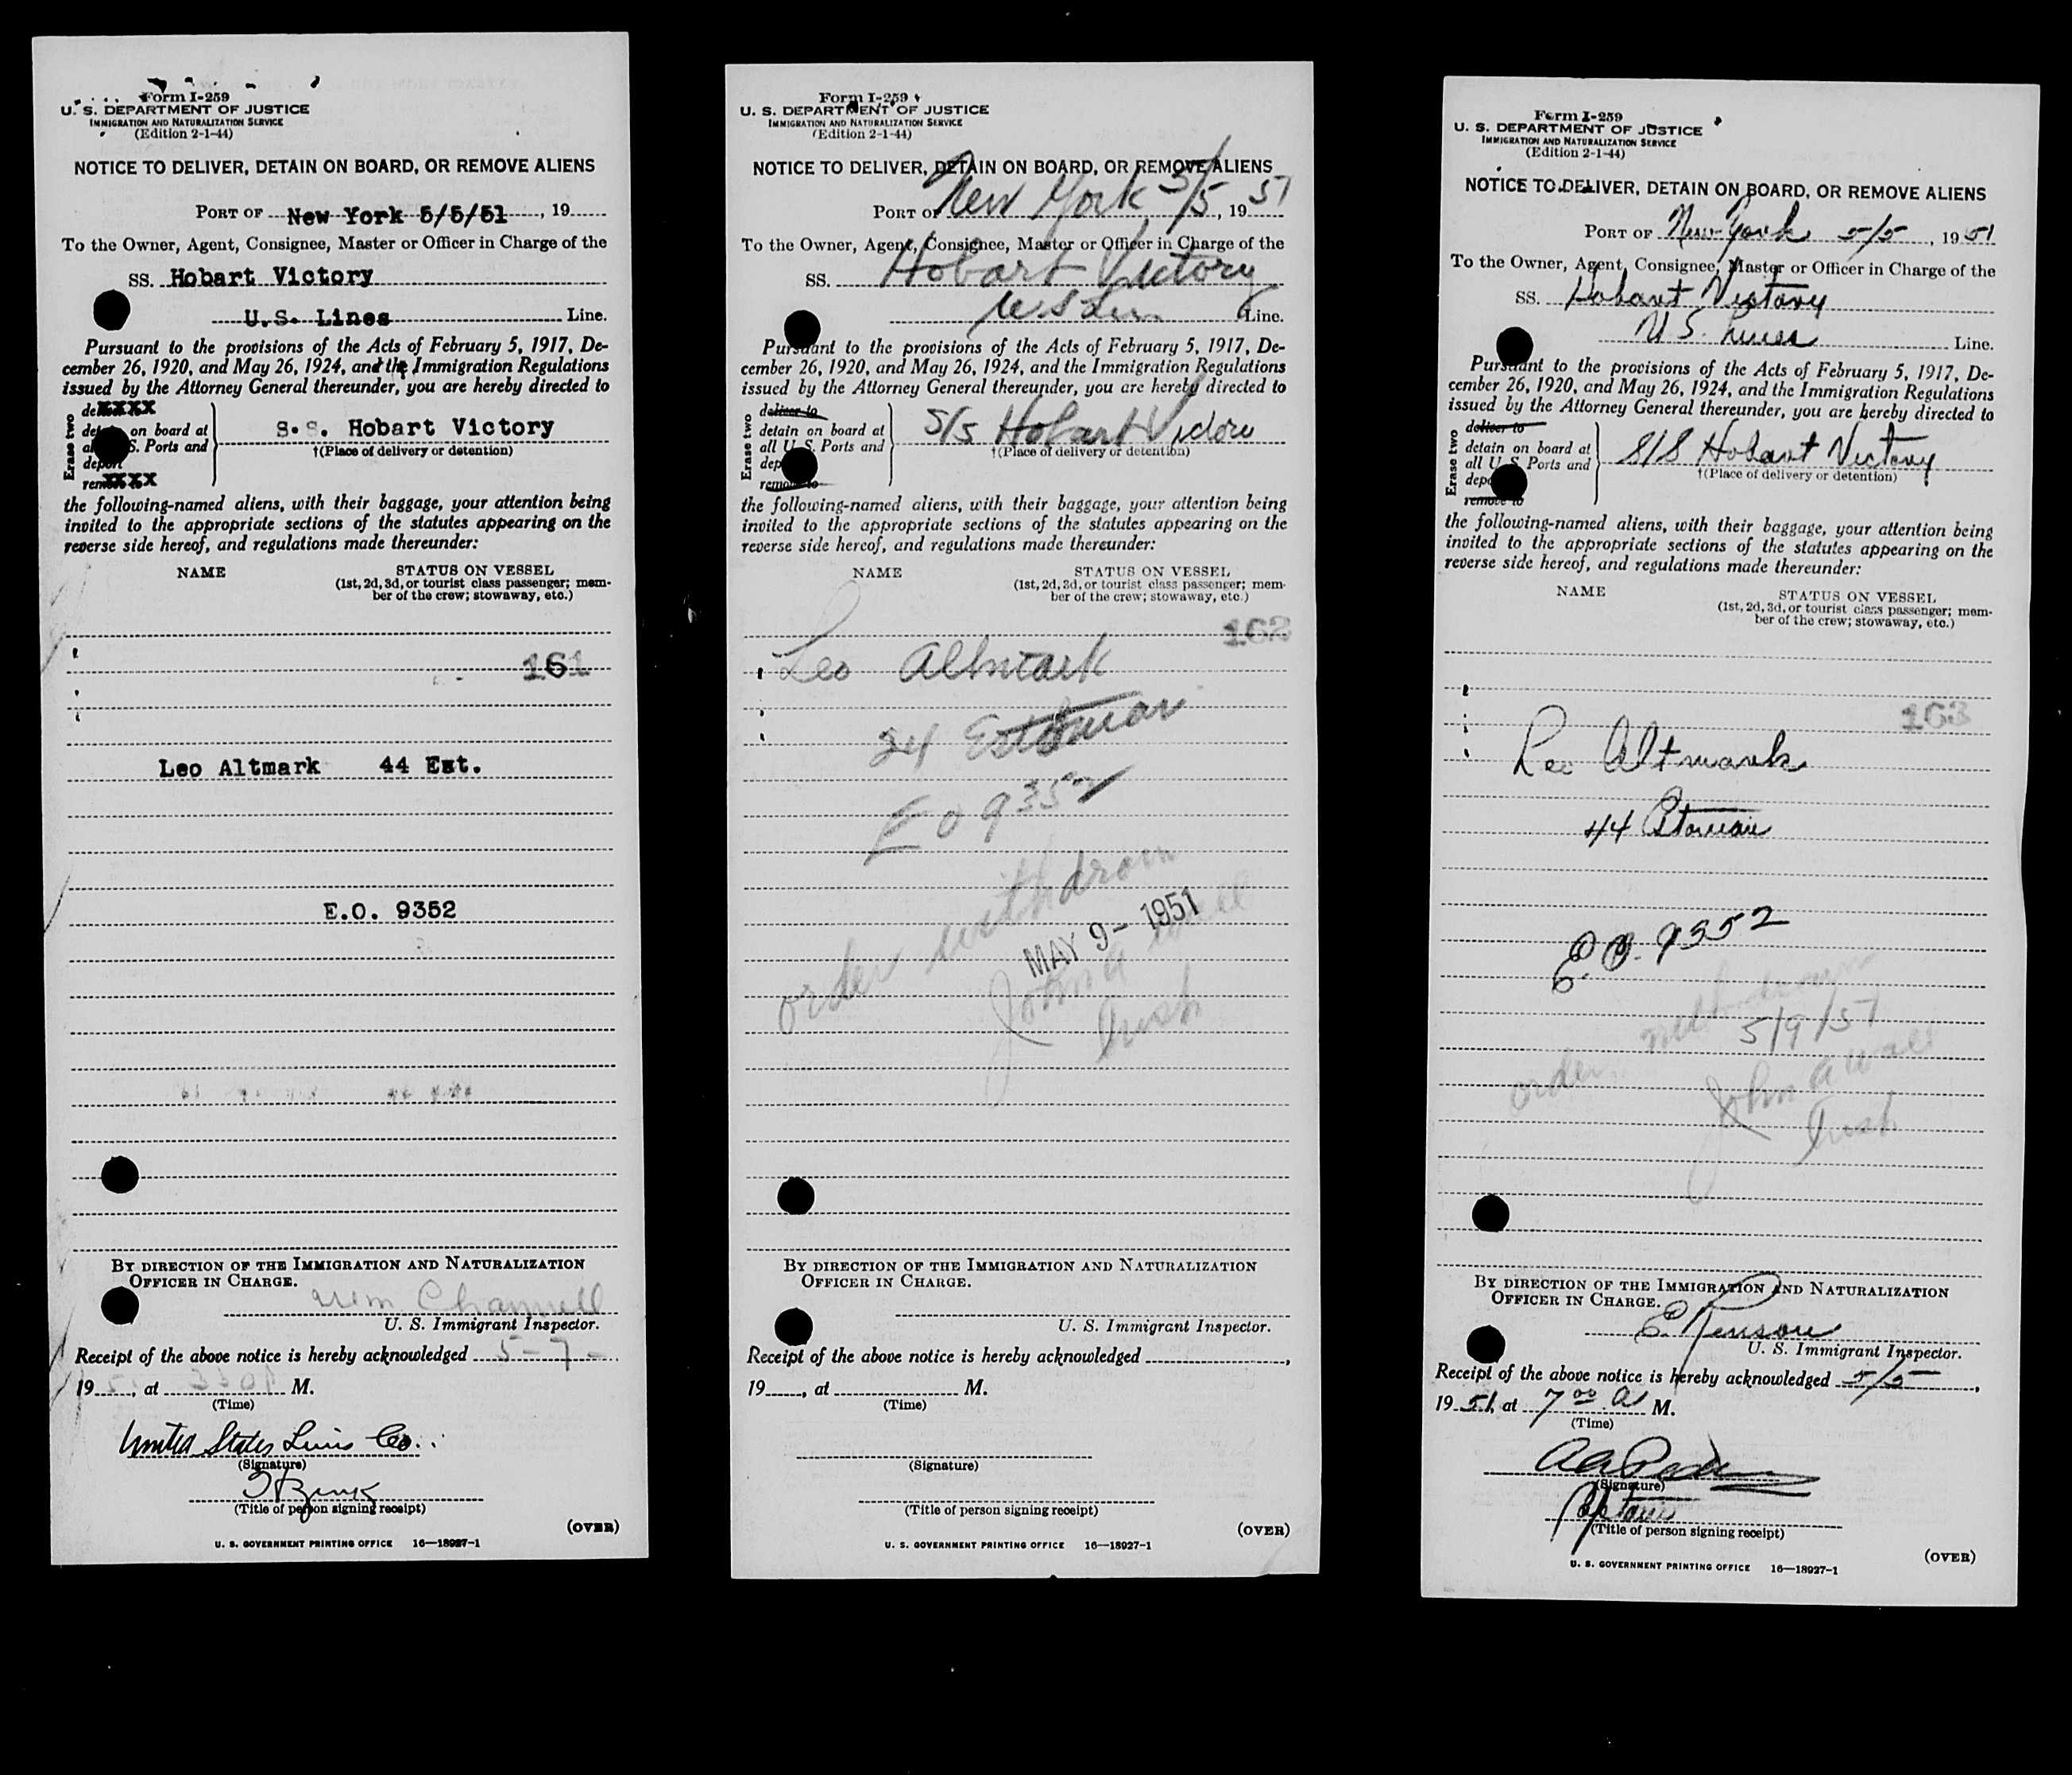 Form I-259
U. S. DEPARTMENT OF JUSTICE
IMMIGRATION AND NATURALIZATION SERVICE
(Edition 2-1-44)
NOTICE TO DELIVER, DETAIN ON BOARD, OR REMOVE ALIENS
PORT OF New York 5/5/51, 19
To the Owner, Agent, Consignee, Master or Officer in Charge of the
SS. Hobart Victory
U.S. Lines Line.
Pursuant to the provisions of the Acts of February 5, 1917, De-
cember 26, 1920, and May 26, 1924, and the Immigration Regulations
issued by the Attorney General thereunder, you are hereby directed to
Erase two
on board at
S. Ports and
deport
S.S. Hobart Victory
†(Place of delivery or detention)
the following-named aliens, with their baggage, your attention being
invited to the appropriate sections of the statutes appearing on the
reverse side hereof, and regulations made thereunder:
NAME STATUS ON VESSEL
(1st, 2d, 3d, or tourist class passenger; mem-
ber of the crew; stowaway, etc.)
161
Leo Altmark 44 Est.
E.O. 9352
BY DIRECTION OF THE IMMIGRATION AND NATURALIZATION
OFFICER IN CHARGE.
Wm Channell
U. S. Immigrant Inspector.
Receipt of the above notice is hereby acknowledged 5-7-
19, at 330 P M.
(Time)
United States Lines Co.
(Signature)
(Title of person signing receipt)
(OVER)
U. S. GOVERNMENT PRINTING OFFICE 16—18927-1
Form I-259
U. S. DEPARTMENT OF JUSTICE
IMMIGRATION AND NATURALIZATION SERVICE
(Edition 2-1-44)
NOTICE TO DELIVER, DETAIN ON BOARD, OR REMOVE ALIENS
PORT OF New York 5/5, 1951
To the Owner, Agent, Consignee, Master or Officer in Charge of the
SS. Hobart Victory
U S Lines Line.
Pursuant to the provisions of the Acts of February 5, 1917, De-
cember 26, 1920, and May 26, 1924, and the Immigration Regulations
issued by the Attorney General thereunder, you are hereby directed to
Erase two
deliver to
detain on board at
all U. S. Ports and
remove to
S/S Hobart Victory
†(Place of delivery or detention)
the following-named aliens, with their baggage, your attention being
invited to the appropriate sections of the statutes appearing on the
reverse side hereof, and regulations made thereunder:
NAME STATUS ON VESSEL
(1st, 2d, 3d, or tourist class passenger; mem-
ber of the crew; stowaway, etc.)
162
Leo Altmark
E O 9352
order withdrawn
MAY 9- 1951
John A Wall
BY DIRECTION OF THE IMMIGRATION AND NATURALIZATION
OFFICER IN CHARGE.
U. S. Immigrant Inspector.
Receipt of the above notice is hereby acknowledged,
19, at M.
(Time)
(Signature)
(Title of person signing receipt)
(OVER)
U. S. GOVERNMENT PRINTING OFFICE 16—18927-1
Form I-259
U. S. DEPARTMENT OF JUSTICE
IMMIGRATION AND NATURALIZATION SERVICE
(Edition 2-1-44)
NOTICE TO DELIVER, DETAIN ON BOARD, OR REMOVE ALIENS
PORT OF New York 5/5, 1951
To the Owner, Agent, Consignee, Master or Officer in Charge of the
SS. Hobart Victory
U S. Lines Line.
Pursuant to the provisions of the Acts of February 5, 1917, De-
cember 26, 1920, and May 26, 1924, and the Immigration Regulations
issued by the Attorney General thereunder, you are hereby directed to
Erase two
deliver to
detain on board at
all U. S. Ports and
remove to
S/S Hobart Victory
†(Place of delivery or detention)
the following-named aliens, with their baggage, your attention being
invited to the appropriate sections of the statutes appearing on the
reverse side hereof, and regulations made thereunder:
NAME STATUS ON VESSEL
(1st, 2d, 3d, or tourist class passenger; mem-
ber of the crew; stowaway, etc.)
163
Leo Altmark
44 Estonian
E.O. 9352
order withdrawn
5/9/51
John A Wall
BY DIRECTION OF THE IMMIGRATION AND NATURALIZATION
OFFICER IN CHARGE.
U. S. Immigrant Inspector.
Receipt of the above notice is hereby acknowledged 5/5,
1951, at 7 00 A M.
(Time)
(Signature)
Captain
(Title of person signing receipt)
(OVER)
U. S. GOVERNMENT PRINTING OFFICE 16—18927-1